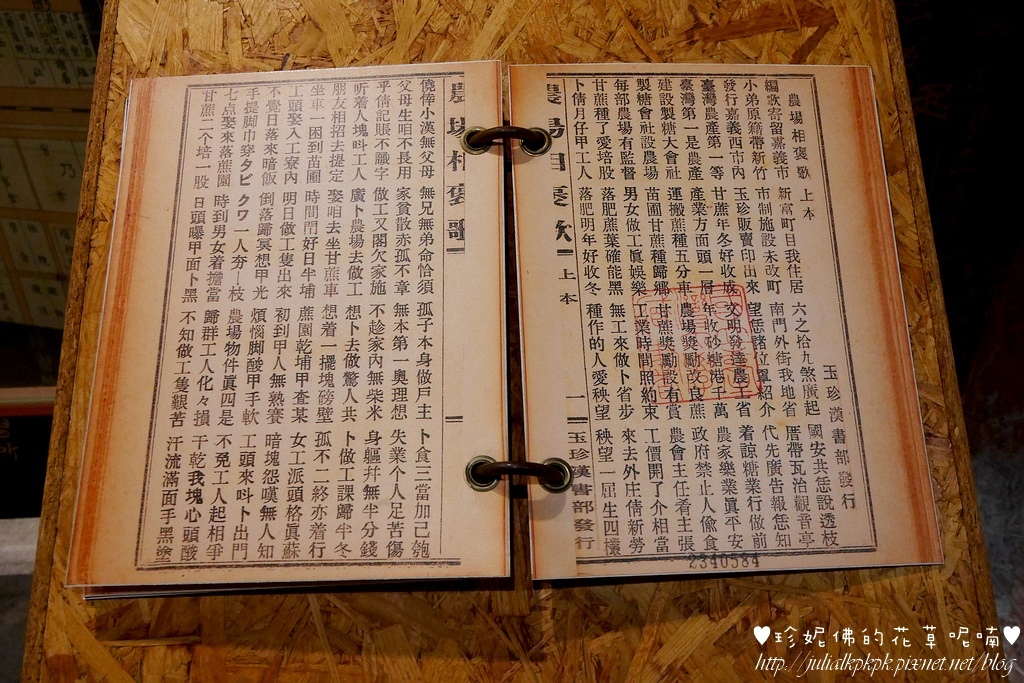 農場相褒歌 上本
玉珍漢書部發行
編歌寄留嘉義市 新富町目我住居 六之拾九煞廣起 國安共恁說透枝
小弟原籍帶新竹 市制施設未改町 南門外街我地省 厝帶瓦治觀音亭
發行嘉義西市內 玉珍販賣印出來 望恁諸位罩紹介 代先廣告報恁知
臺灣農產第一等 甘蔗年冬好收成 文明發達農工省 着諒糖業行做前
臺灣第一是農產 產業方面頭一層 年收砂糖港千萬 農家樂業眞平安
建設製糖大會社 運搬蔗種五分車 農場獎勵改良蔗 政府禁止人偷食
製糖會社設農場 苗圃甘蔗種歸鄉 甘蔗獎勵設有賞 農會主任着主張
每部農場有監督 男女做工眞娛樂 工業時間照約束 工價開了介相當
甘蔗種了愛培股 落肥蔗葉確能黑 無工來做卜省步 來去外庄倩新勞
卜倩月仔甲工人 落肥明年好收冬 種作的人愛秧望 秧望一屆生四欉
農場相褒歌 上本 一 玉珍漢書部發行
2340584
農場相褒歌
僥倖小漢無父母 無兄無弟命恰須 孤子本身做戶主 卜食三當加己匏
父母生咱不長用 家貧散赤孤不章 無本第一奧理想 失業个人足苦傷
乎倩記賬不識字 做工又閣欠家施 不趁家內無柴米 身軀幷無半分錢
听着人塊叫工人 廣卜農場去做工 想卜去做驚人共 卜做工課歸半冬
朋友相招去提定 娶咱去坐甘蔗車 想着一擺塊磅壁 孤不二終亦着行
坐車一困到苗圃 時間閂好日半埔 蔗園乾埔甲查某 女工派頭格眞蘇
工頭娶入工寮內 明日做工隻出來 初到甲人無熟賽 暗塊怨嘆無人知
不覺日落來暗飯 倒落歸冥想甲光 煩惱脚酸甲手軟 工頭來叫卜出門
手提脚巾穿タビ クワ一人夯一枝 農場物件眞四是 不免工人起相爭
七点娶來落蔗園 時到男女着擔當 歸群工人化々損 干乾我塊心頭酸
甘蔗一个培一股 日頭曝甲面卜黑 不知做工隻艱苦 汗流滿面手黑塗
♥珍妮佛的花草呢喃♥
http://julialkpkpk.pixnet.net/blog